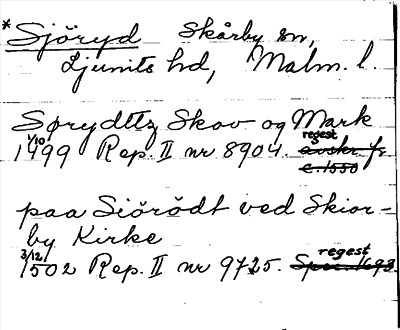 * Sjöryd Skårby sn,
Ljunits hd, Malm. l.
Sørydttz Skov og Mark
1/10 1499 Rep. II nr 8904. regest avskr. fr. c. 1550
paa Siörödt ved Skior-
by Kirke
3/12 1502 Rep. II nr 9725. regest Spec. 1693